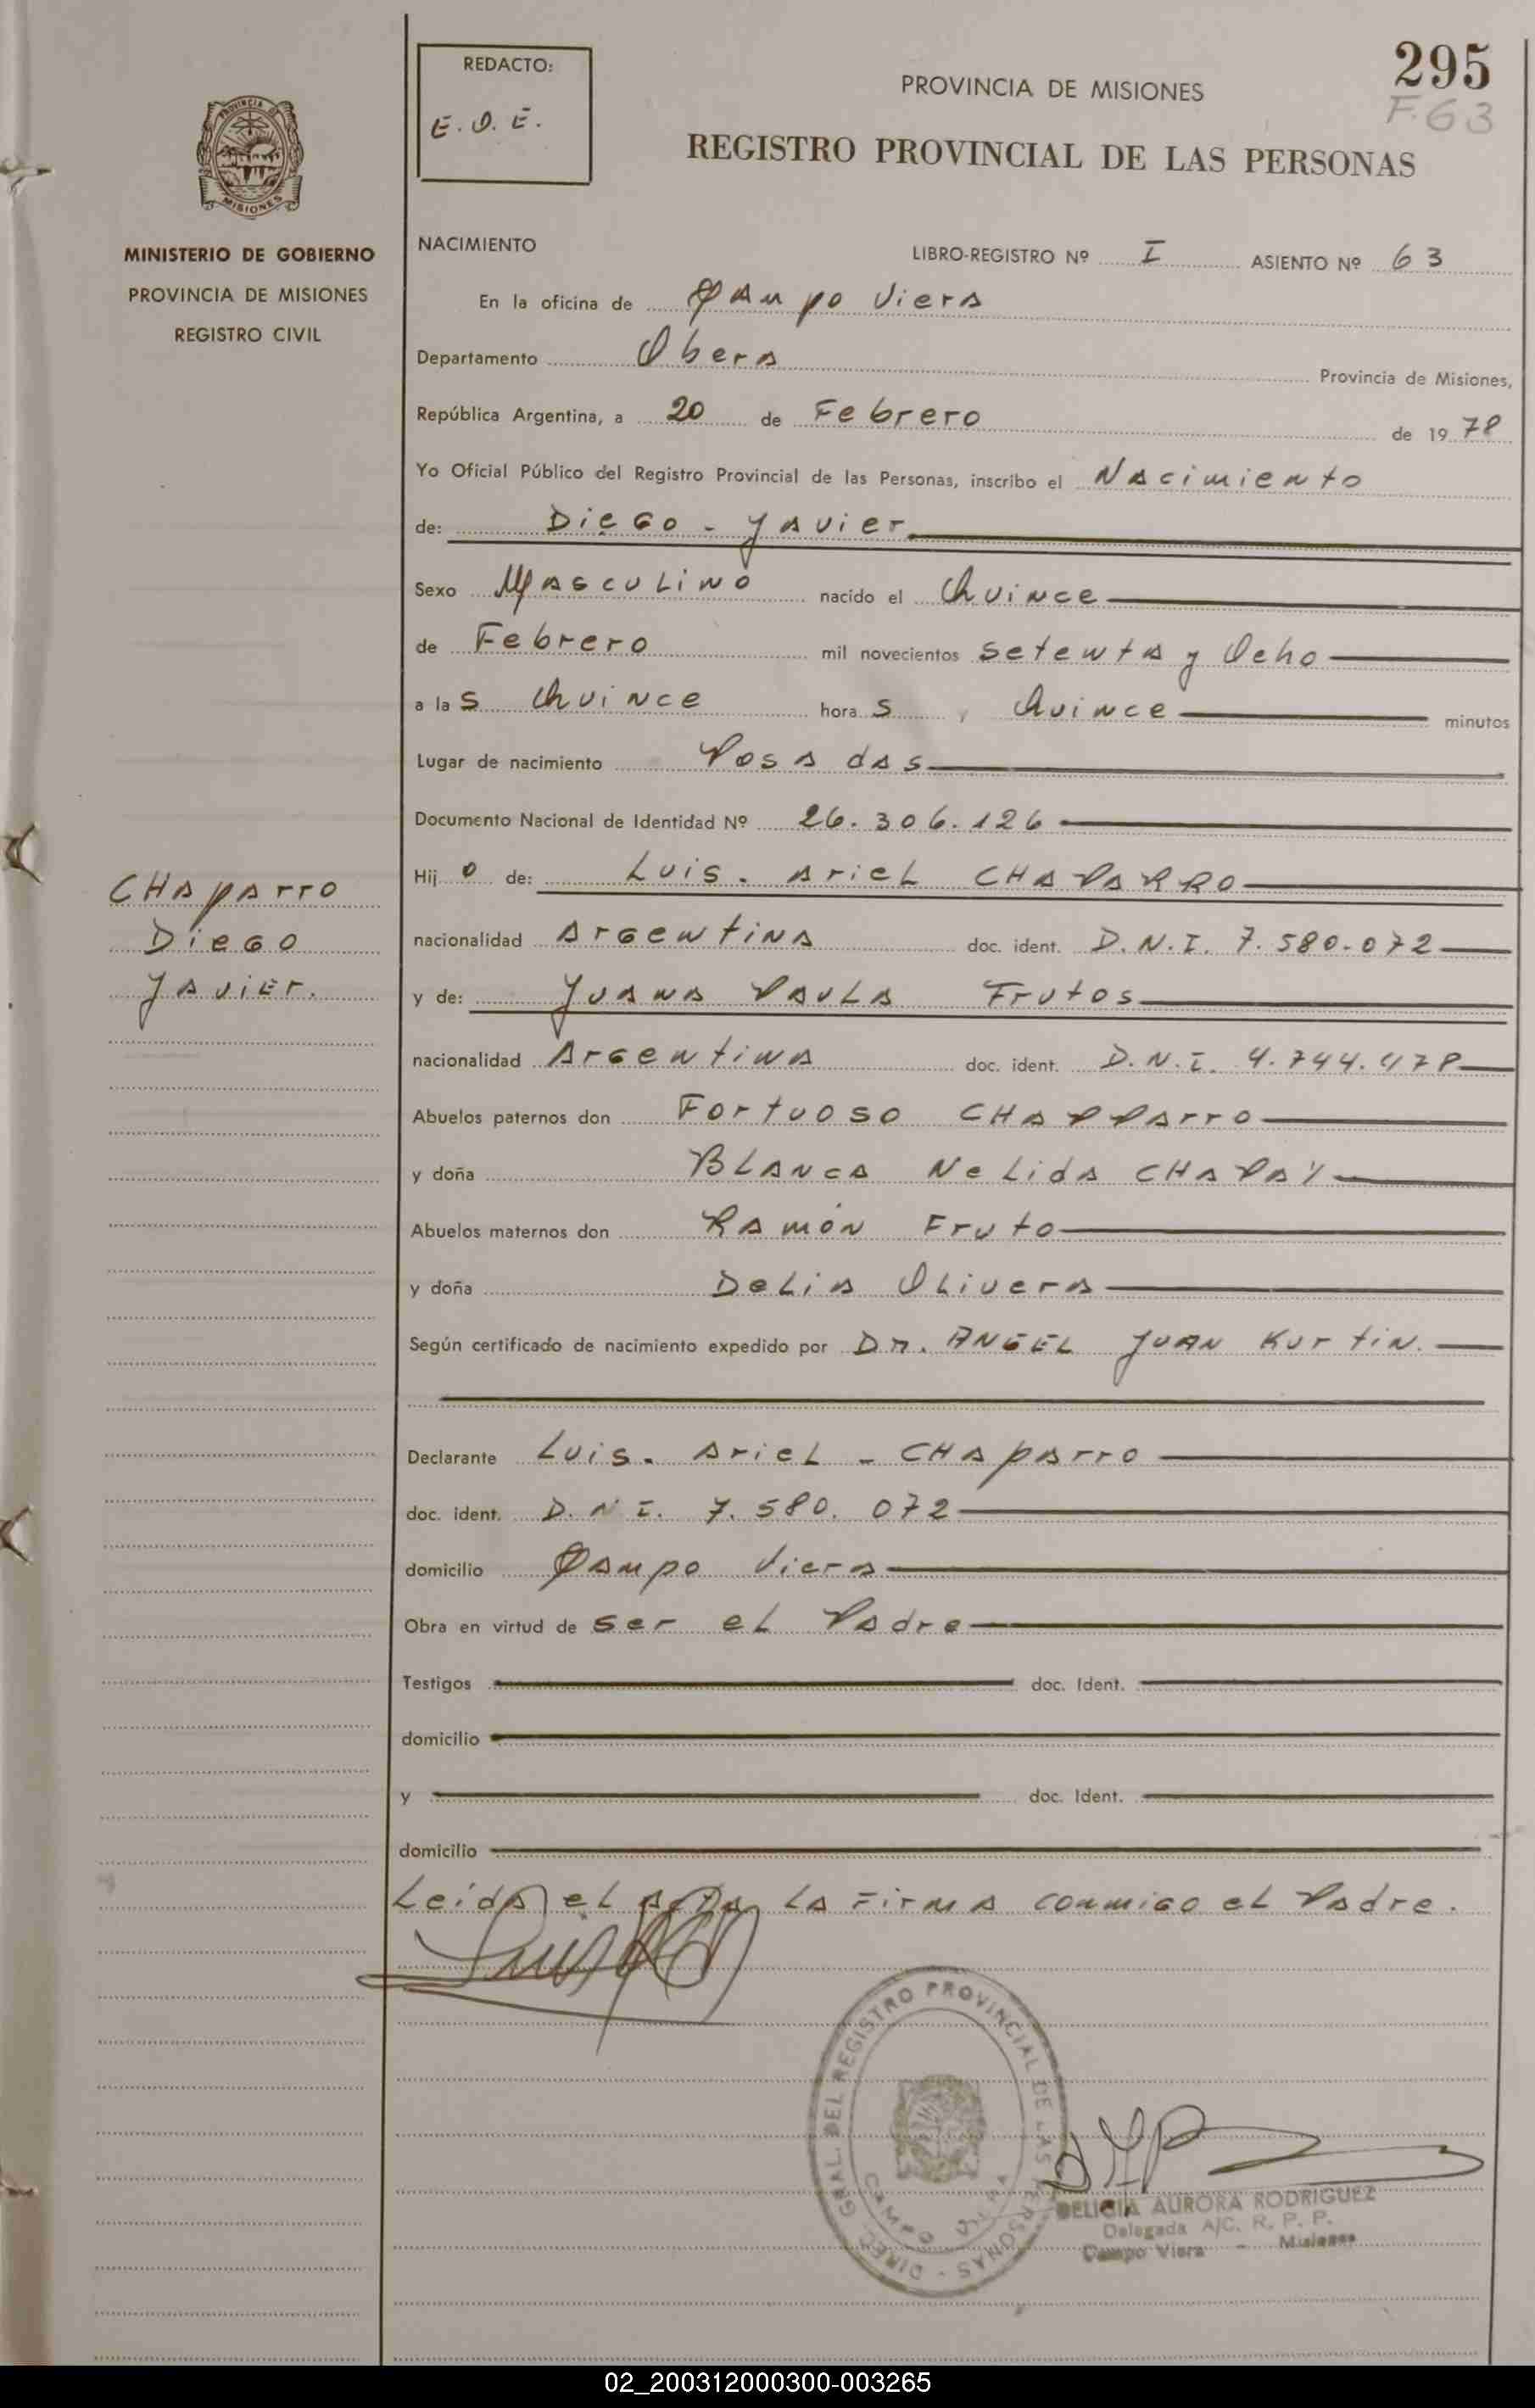 295
F.63
REDACTO:
E.O.E.
PROVINCIA DE MISIONES
REGISTRO PROVINCIAL DE LAS PERSONAS
PROVINCIA
MISIONES
MINISTERIO DE GOBIERNO
PROVINCIA DE MISIONES
REGISTRO CIVIL
NACIMIENTO LIBRO-REGISTRO Nº I ASIENTO Nº 63
En la oficina de Campo Viera
Departamento Obera Provincia de Misiones,
República Argentina, a 20 de Febrero de 1978
Yo Oficial Público del Registro Provincial de las Personas, inscribo el Nacimiento
de: Diego - Javier
Sexo Masculino nacido el Quince
de Febrero mil novecientos setenta y Ocho
a las Quince horas, Quince minutos
Lugar de nacimiento Posadas
Documento Nacional de Identidad Nº 26.306.126
Hijo de: Luis. Ariel CHAPARRO
CHAparro
Diego
Javier.
nacionalidad Argentina doc. ident. D.N.I. 7.580.072
y de: Juana Paula Frutos
nacionalidad Argentina doc. ident. D.N.I. 4.744.478
Abuelos paternos don Fortuoso CHAPParro
y doña Blanca Nelida CHAPAY
Abuelos maternos don Ramón Fruto
y doña Delia Olivera
Según certificado de nacimiento expedido por Dr. ANGEL JUAN Kurtin.
Declarante Luis. Ariel - CHAparro
doc. ident. D.N.I. 7.580.072
domicilio Campo Viera
Obra en virtud de ser el Padre
Testigos doc. Ident.
domicilio
y doc. Ident.
domicilio
Leida el acta la Firma conmigo el Padre.
DIREC. GRAL. DEL REGISTRO PROVINCIAL DE LAS PERSONAS
CAMPO VIERA
DELICIA AURORA RODRIGUEZ
Delegada A/C. R. P. P.
Campo Viera - Misiones
02_200312000300-003265